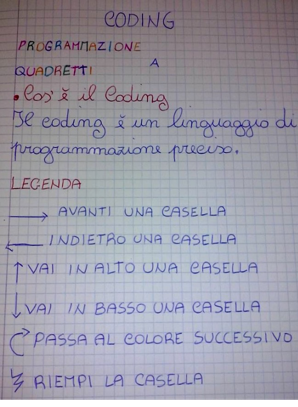 CODING
PROGRAMMAZIONE
A
QUADRETTI
• Cos' è il Coding
Il coding è un linguaggio di
programmazione preciso.
LEGENDA
→ AVANTI UNA CASELLA
← INDIETRO UNA CASELLA
↑ VAI IN ALTO UNA CASELLA
↓ VAI IN BASSO UNA CASELLA
PASSA AL COLORE SUCCESSIVO
RIEMPI LA CASELLA